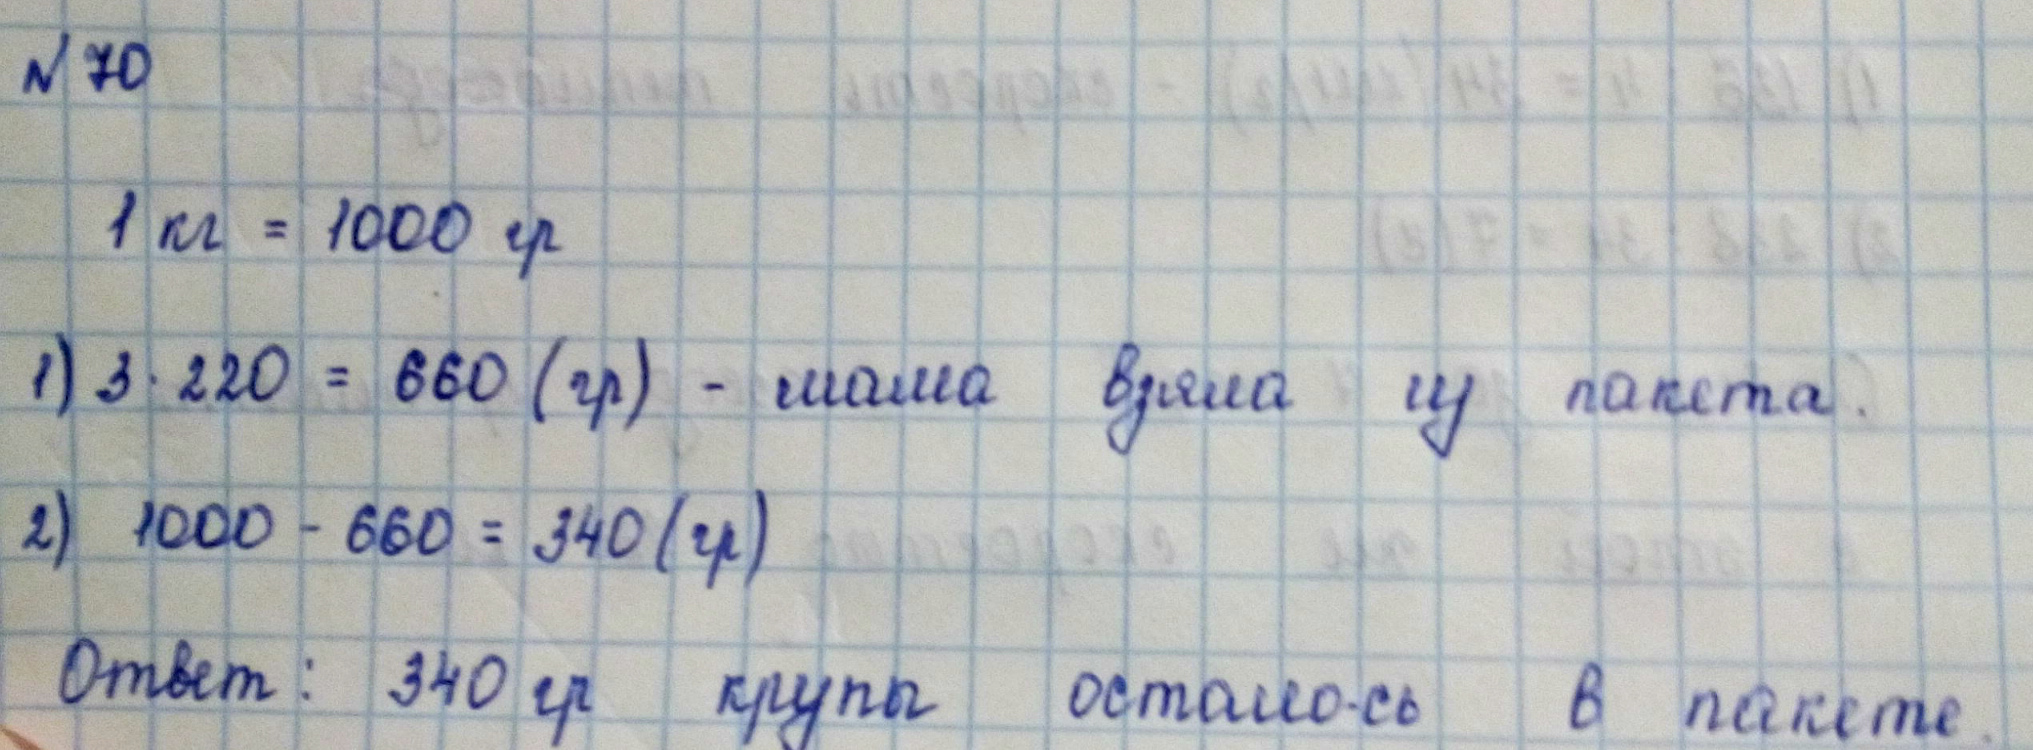 № 70
1 кг = 1000 гр
1) 3 · 220 = 660 (гр) - мама взяла из пакета.
2) 1000 - 660 = 340 (гр)
Ответ: 340 гр крупы осталось в пакете.